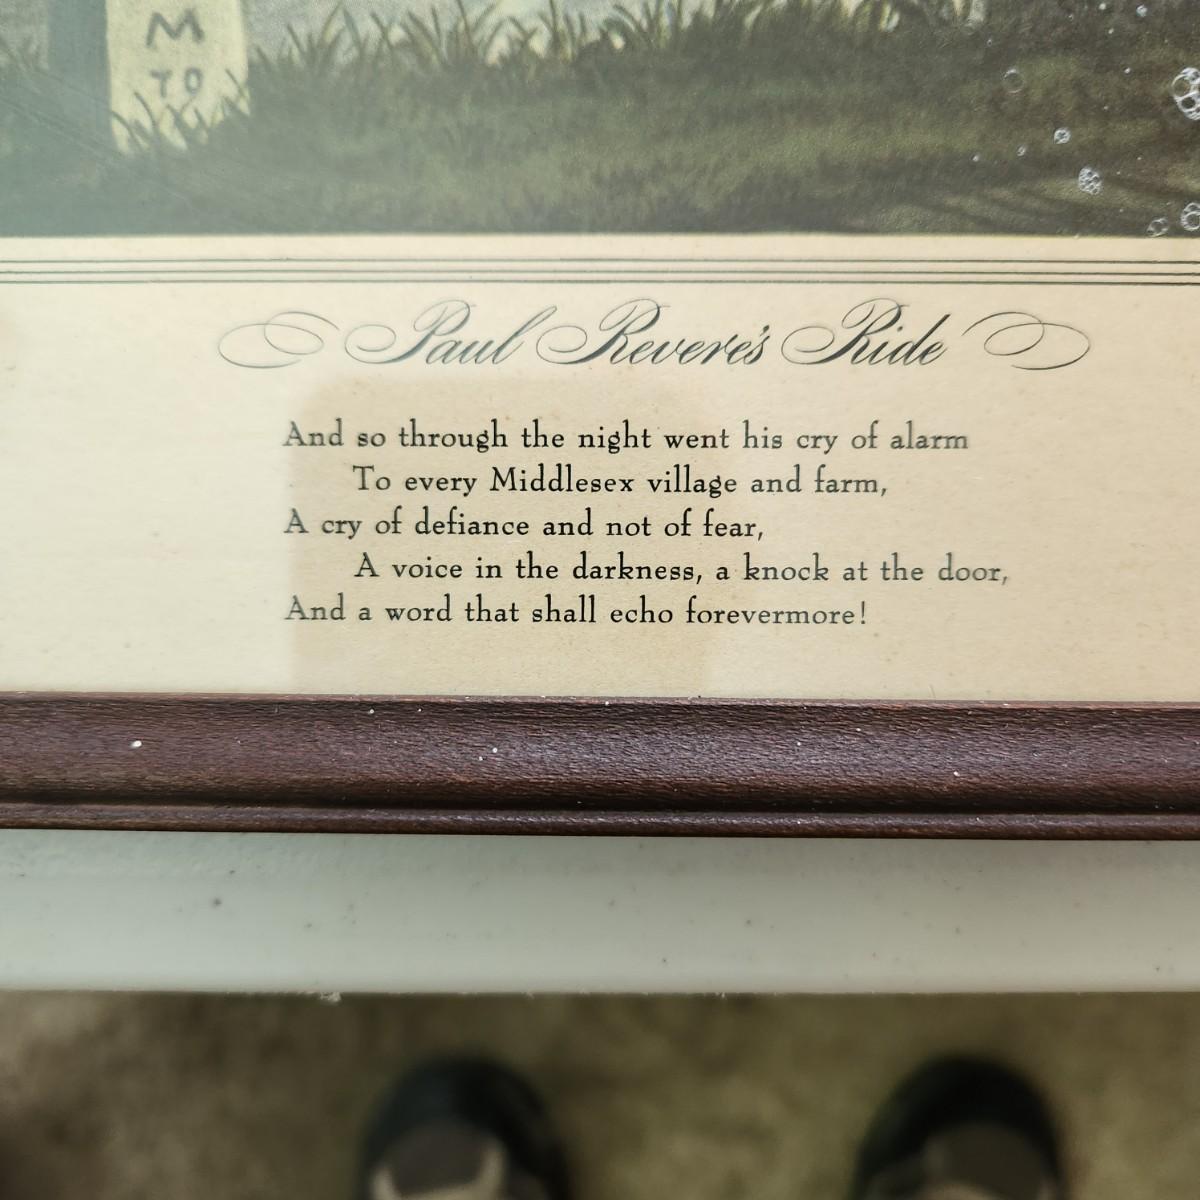 M
TO
Paul Revere's Ride
And so through the night went his cry of alarm
To every Middlesex village and farm,
A cry of defiance and not of fear,
A voice in the darkness, a knock at the door,
And a word that shall echo forevermore!